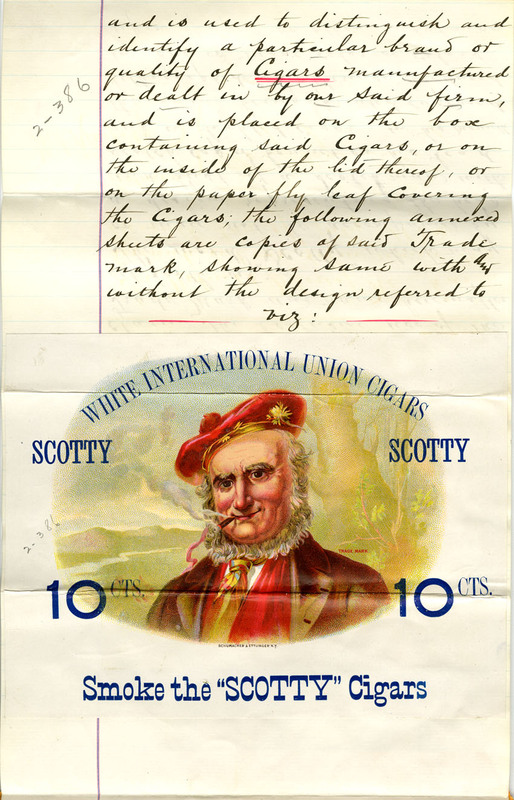 and is used to distinguish and
identify a particular brand or
quality of Cigars manufactured
or dealt in by our said firm,
and is placed on the box
containing said Cigars, or on
the inside of the lid thereof, or
on the paper fly leaf covering
the Cigars; the following annexed
sheets are copies of said Trade
mark, showing same with and
without the design referred to
viz:
2-386
WHITE INTERNATIONAL UNION CIGARS
SCOTTY SCOTTY
2-386
TRADE MARK
10 CTS. 10 CTS.
SCHUMACHER & ETTLINGER N.Y.
Smoke the "SCOTTY" Cigars